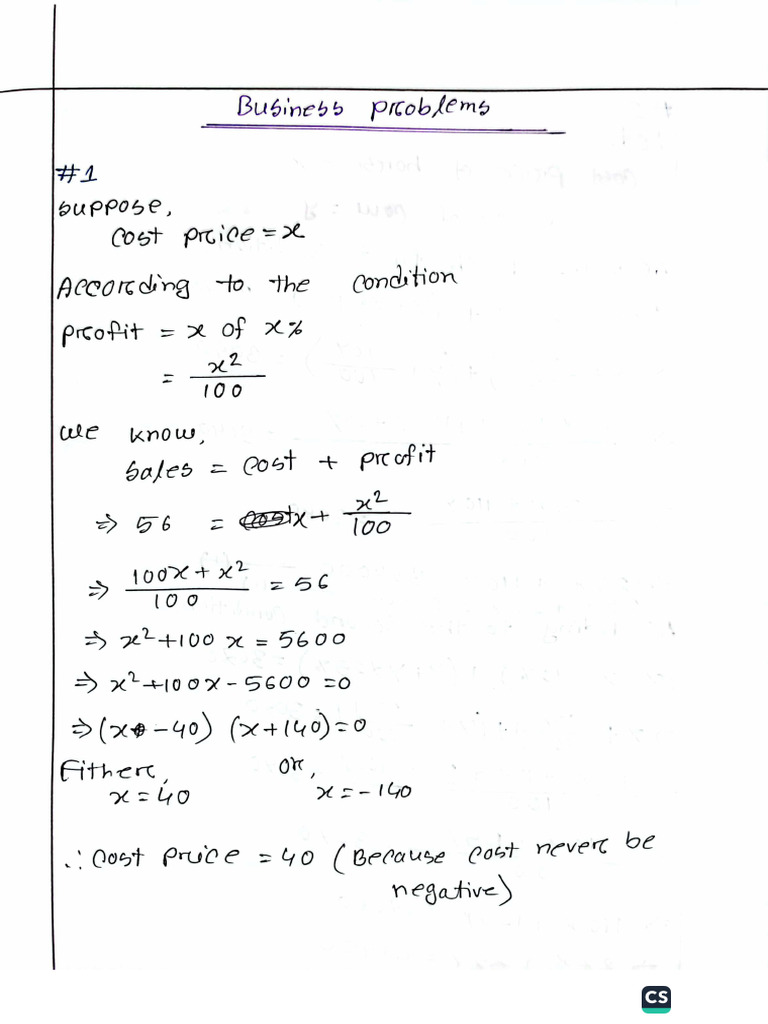 Business problems
#1
Suppose,
Cost price = x
According to the condition
profit = x of x%
= x²/100
We know,
Sales = cost + profit
⇒ 56 = x + x²/100
⇒ (100x + x²)/100 = 56
⇒ x² + 100x = 5600
⇒ x² + 100x - 5600 = 0
⇒ (x - 40) (x + 140) = 0
Either, or,
x = 40 x = -140
∴ cost price = 40 (Because cost never be
negative)
CS